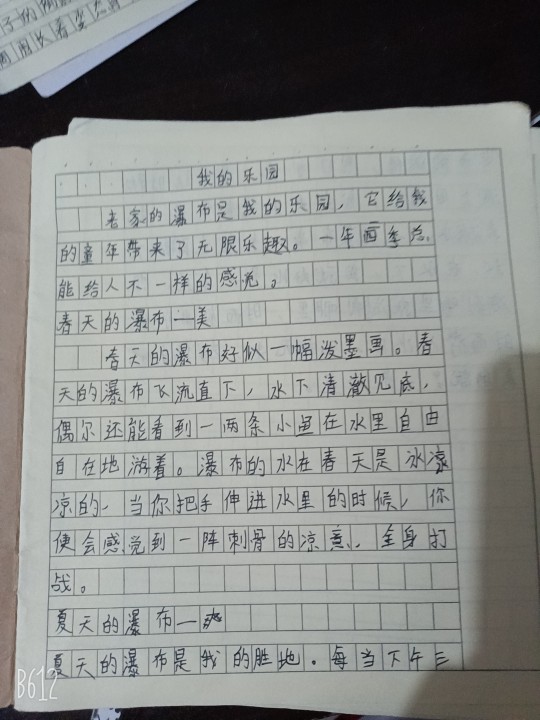 我的乐园
老家的瀑布是我的乐园，它给我
的童年带来了无限乐趣。一年四季总
能给人不一样的感觉。
春天的瀑布一美
春天的瀑布好似一幅泼墨画。春
天的瀑布飞流直下，水下清澈见底，
偶尔还能看到一两条小鱼在水里自由
自在地游着。瀑布的水在春天是冰凉
凉的、当你把手伸进水里的时候，你
便会感觉到一阵刺骨的凉意，全身打
战。
夏天的瀑布一爽
夏天的瀑布是我的胜地。每当下午三
B612